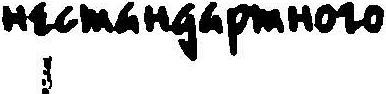 нестандартного